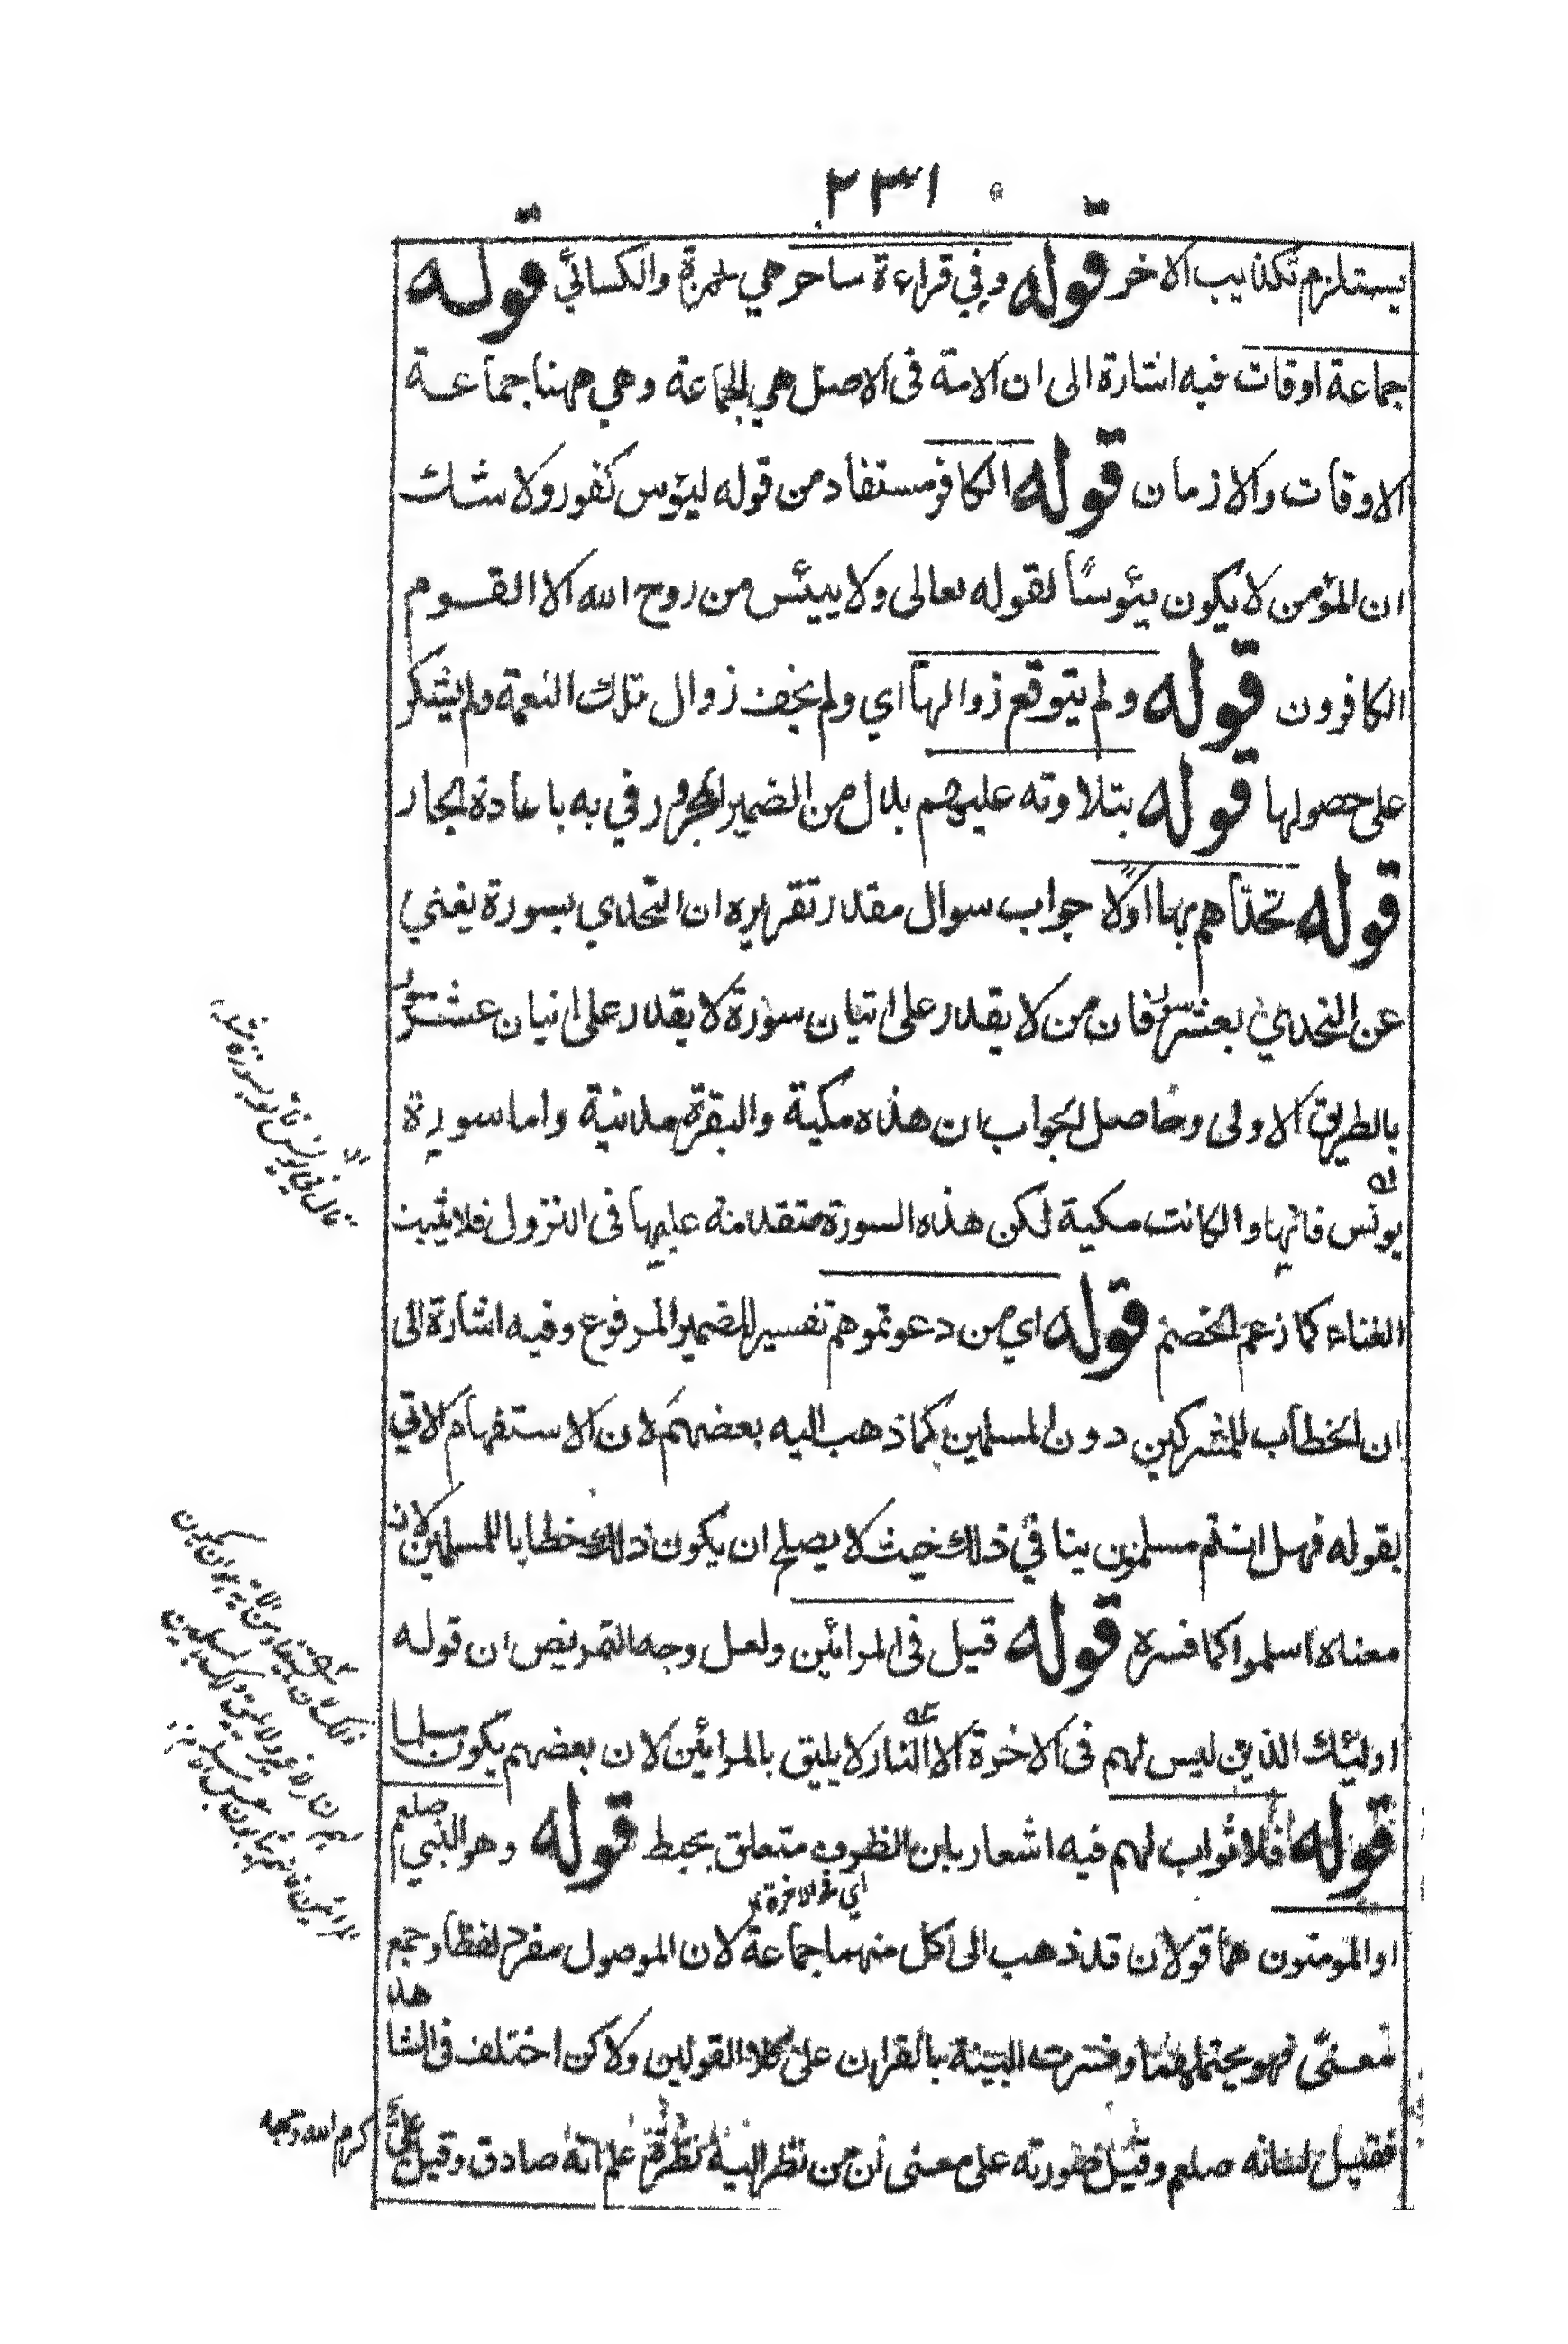 ٢٣١
يستلزم تكذيب الاخر قوله وفي قراءة ساحر هي لحمزة والكسائي قوله
جماعة اوقات فيه اشارة الى ان الامة فى الاصل هي الجماعة وهي ههنا جماعة
الاوقات والازمان قوله الكافر مستفاد من قوله ليؤس كفور ولا شك
ان المؤمن لا يكون يئوسًا لقوله تعالى ولا ييئس من روح الله الا القوم
الكافرون قوله ولم يتوقع زوالها اي ولم يخف زوال تلك النعمة ولم يشكر
على حصولها قوله بتلاوته عليهم بدل من الضمير المجرور في به باعادة الجار
قوله تحداهم بها اولًا جواب سوال مقدر تقريره ان التحدي بسورة يغني
عن التحدي بعشر سور فان من لا يقدر على اتيان سورة لا يقدر على اتيان عشر سور
بالطريق الاولى وحاصل الجواب ان هذه مكية والبقرة مدنية واما سورة
يونس فانها وان كانت مكية لكن هذه السورة متقدمة عليها فى النزول فلا يثبت
الغناء كما زعم الخصم قوله اي من دعوتموهم تفسير للضمير المرفوع وفيه اشارة الى
ان الخطاب للمشركين دون المسلمين كما ذهب اليه بعضهم لان الاستفهام الاتي
بقوله فهل انتم مسلمون ينافي ذلك حيث لا يصلح ان يكون ذلك خطابا للمسلمين لان
معناه اسلموا كما فسره قوله قيل فى المرائين ولعل وجه التمريض ان قوله
اولئك الذين ليس لهم فى الاخرة الا النار لا يليق بالمرائين لان بعضهم يكون مسلما
قوله فلا ثواب لهم فيه اشعار بان الظرف متعلق بحبط قوله وهو النبي صلعم
اي فى الاخرة
او المؤمنون هما قولان قد ذهب الى كل منهما جماعة لان الموصول مفرد لفظا وجمع
معنى فهو يحتملهما وفسرت البينة بالقران على كلا القولين ولاكن اختلف فى الشاهد
فقيل لسانه صلعم وقيل صورته على معنى ان من نظر اليه نظرة علم انه صادق وقيل علي
كرم الله وجهه